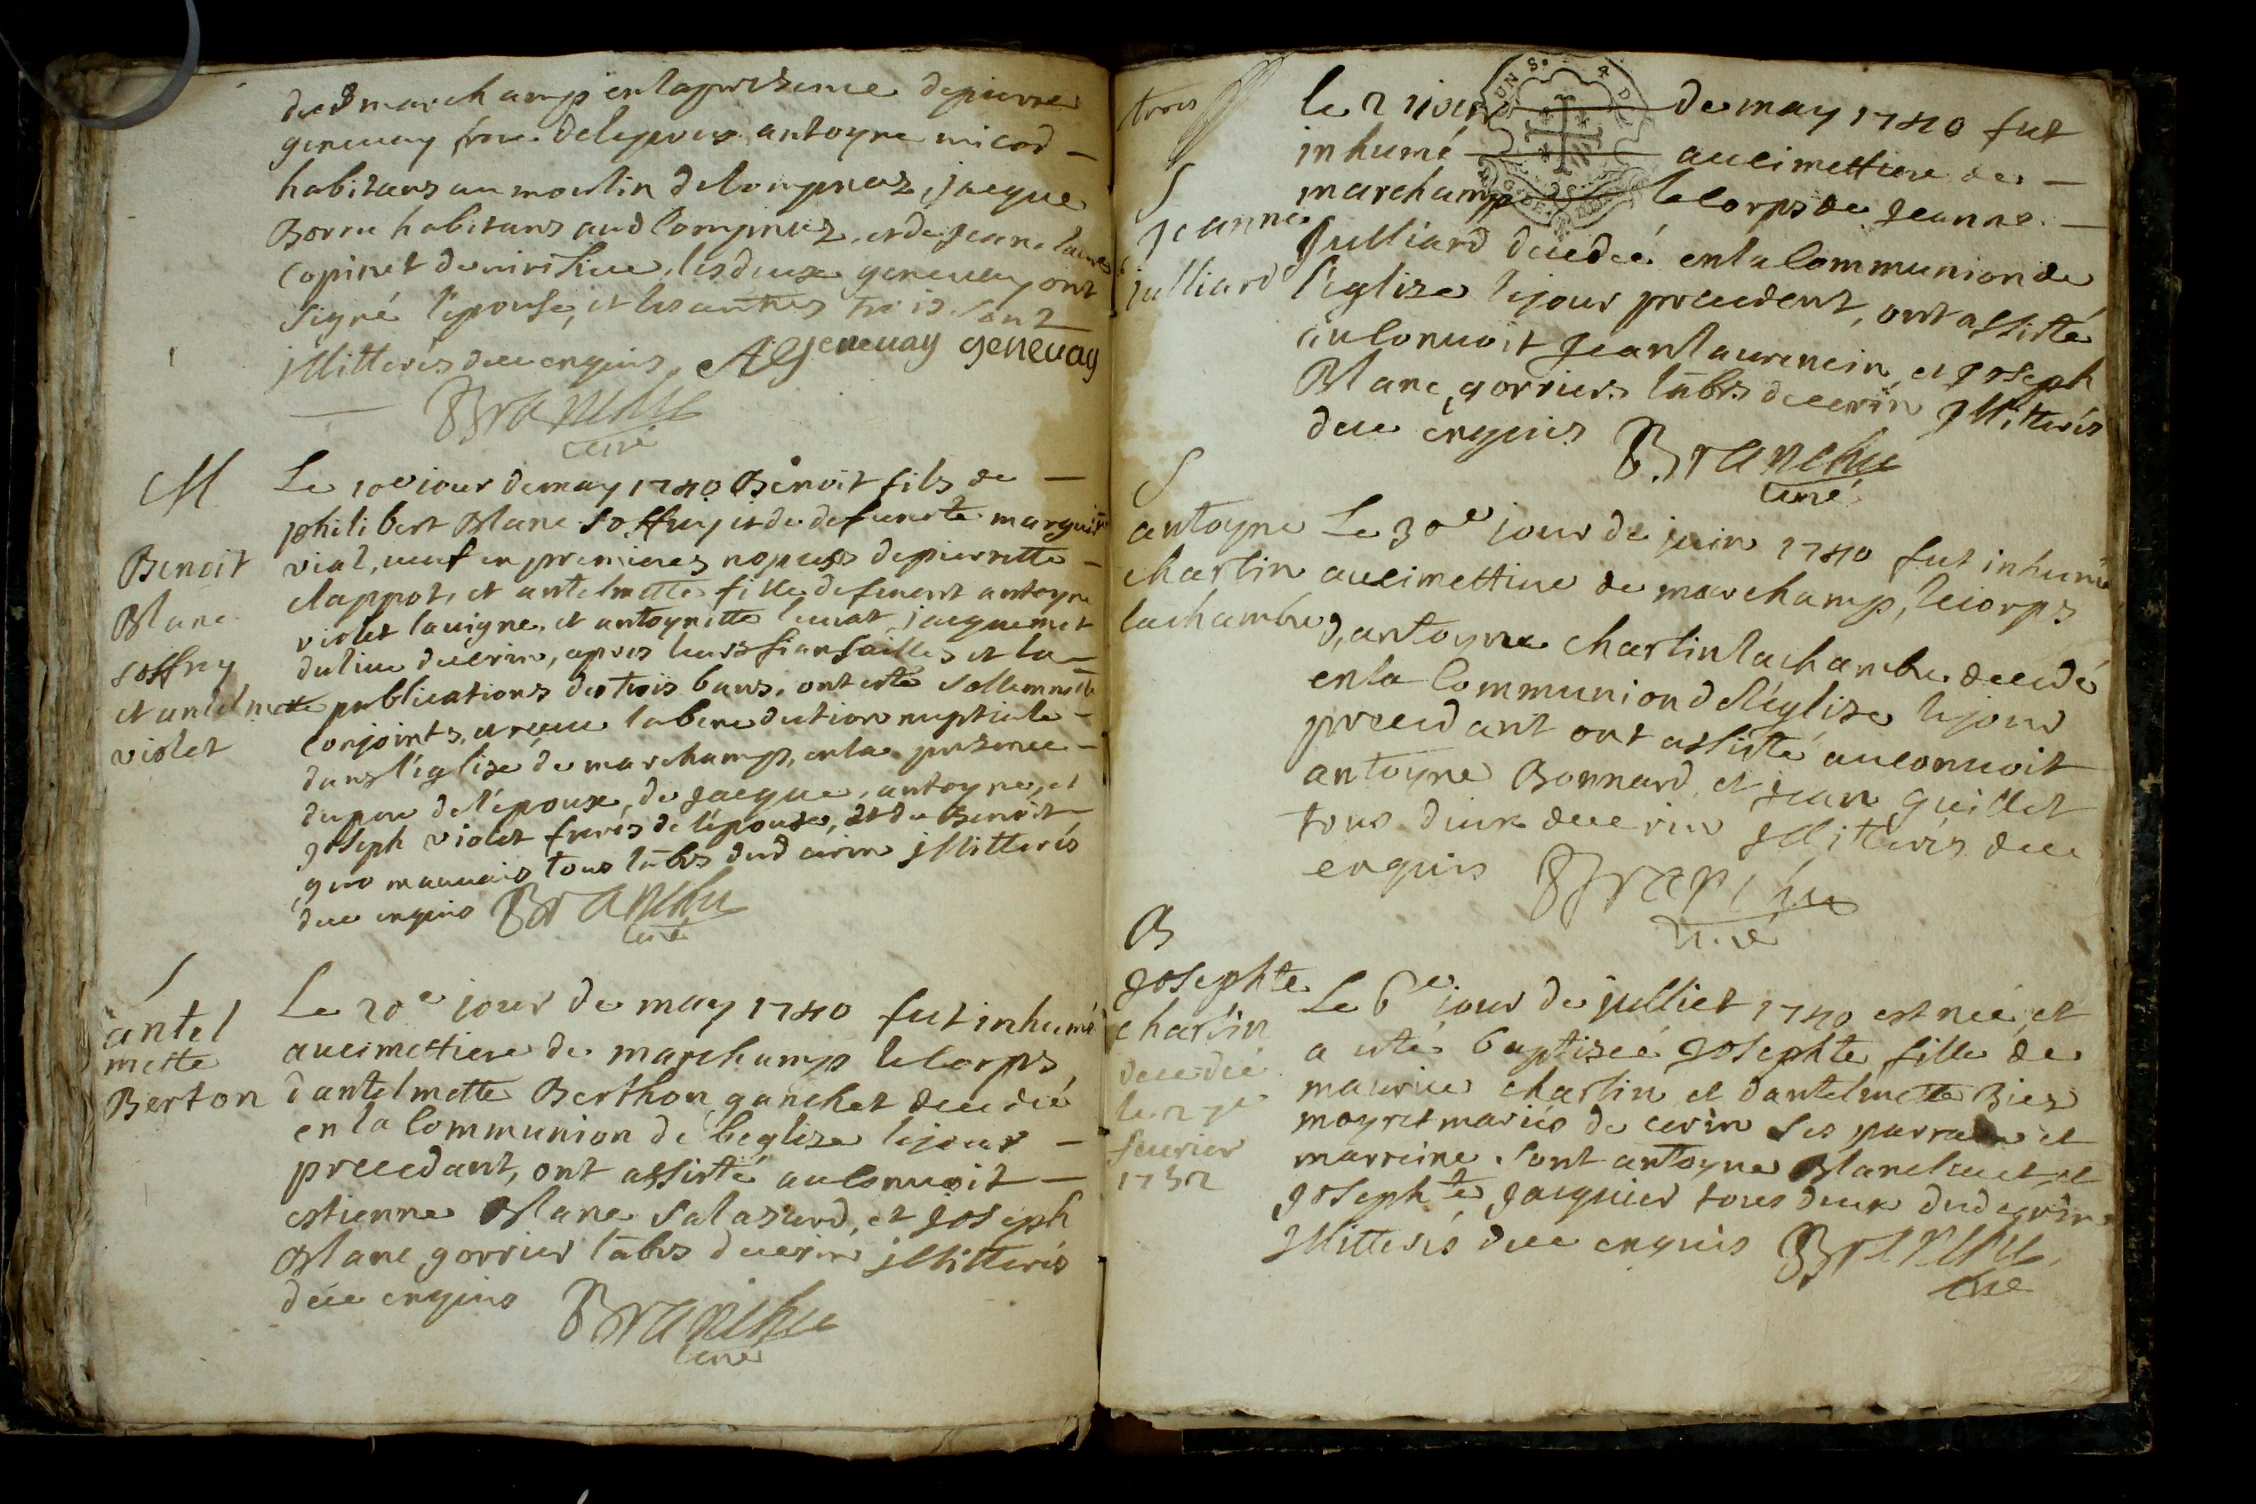 dud marchamp en la presence de pierre
genevay frere de lepoux antoyne micod
habitans au moulin de lompnaz, jacque
Borru habitans aud lompnaz, et de jeane
copinet de virisieu, les deux genevay ont
signé l'epouse, et les autres trois sont
jllitterés de ce enquis, Al genevay genevay
Branche
curé
M
Benoit
Blanc
soffrey
et antelmette
violet
Le 10e jour de may 1740 Benoit fils de
philibert Blanc soffrey et de defuncte marguerite
vial, veuf en premieres nopces de pierrette
clappot, et antelmette fille de feu antoyne
violet lavigne, et antoynette jacquemet
du lieu de cerin, apres leurs fiansailles et la
publications des trois bans, ont esté sollemnelle
conjoints, et receu la benediction nuptiale
dans l'eglize de marchamp, en la presence
du pere de l'epoux, de jacque, antoyne, et
joseph violet freres de l'epouse, et de Benoit
gros mauvais tous habs dud cerin jllitterés
de ce enquis Branche
curé
S
antel
mette
Berton
Le 20e jour de may 1740 fut inhumé
au cimettiere de marchamp le corps
dantelmette Berthon ganchet decedeé
en la communion de l'eglize le jour
precedant, ont assisté au convoit
estienne Blanc salazard, et joseph
Blanc gorrier habs de cerin jllitterés
de ce enquis Branche
curé
trois
S
jeanne
julliard
le 2 jour de may 1740 fut
inhumé au cimettiere de
marchamp le corps de jeanne
julliard decedeé en la communion de
l'eglize le jour precedent, ont assisté
au convoit jean laurencin et joseph
Blanc gorriers habs de cerin jllitterés
de ce enquis Branche
curé
S
antoyne
charlin
lachambre
Le 30e jour de juin 1740 fut inhumé
au cimettiere de marchamp, le corps
d'antoyne charlin lachambre decedé
en la communion de l'eglize le jour
precedant ont assisté au convoit
antoyne Bonnard et jean guillet
tous deux de cerin jllitterés de ce
enquis Branche
curé
B
josephte
charlin
decedeé
le 27e
fevrier
1752
Le 6e jour de julliet 1740 est neé, et
a eté baptizeé josephte fille de
maurice charlin et dantelmette Biez
moyret mariés de cerin ses parrain et
marreine sont antoyne Blanc et
josephte jacquier tous deux dud cerin
jllitterés de ce enquis Branche
curé